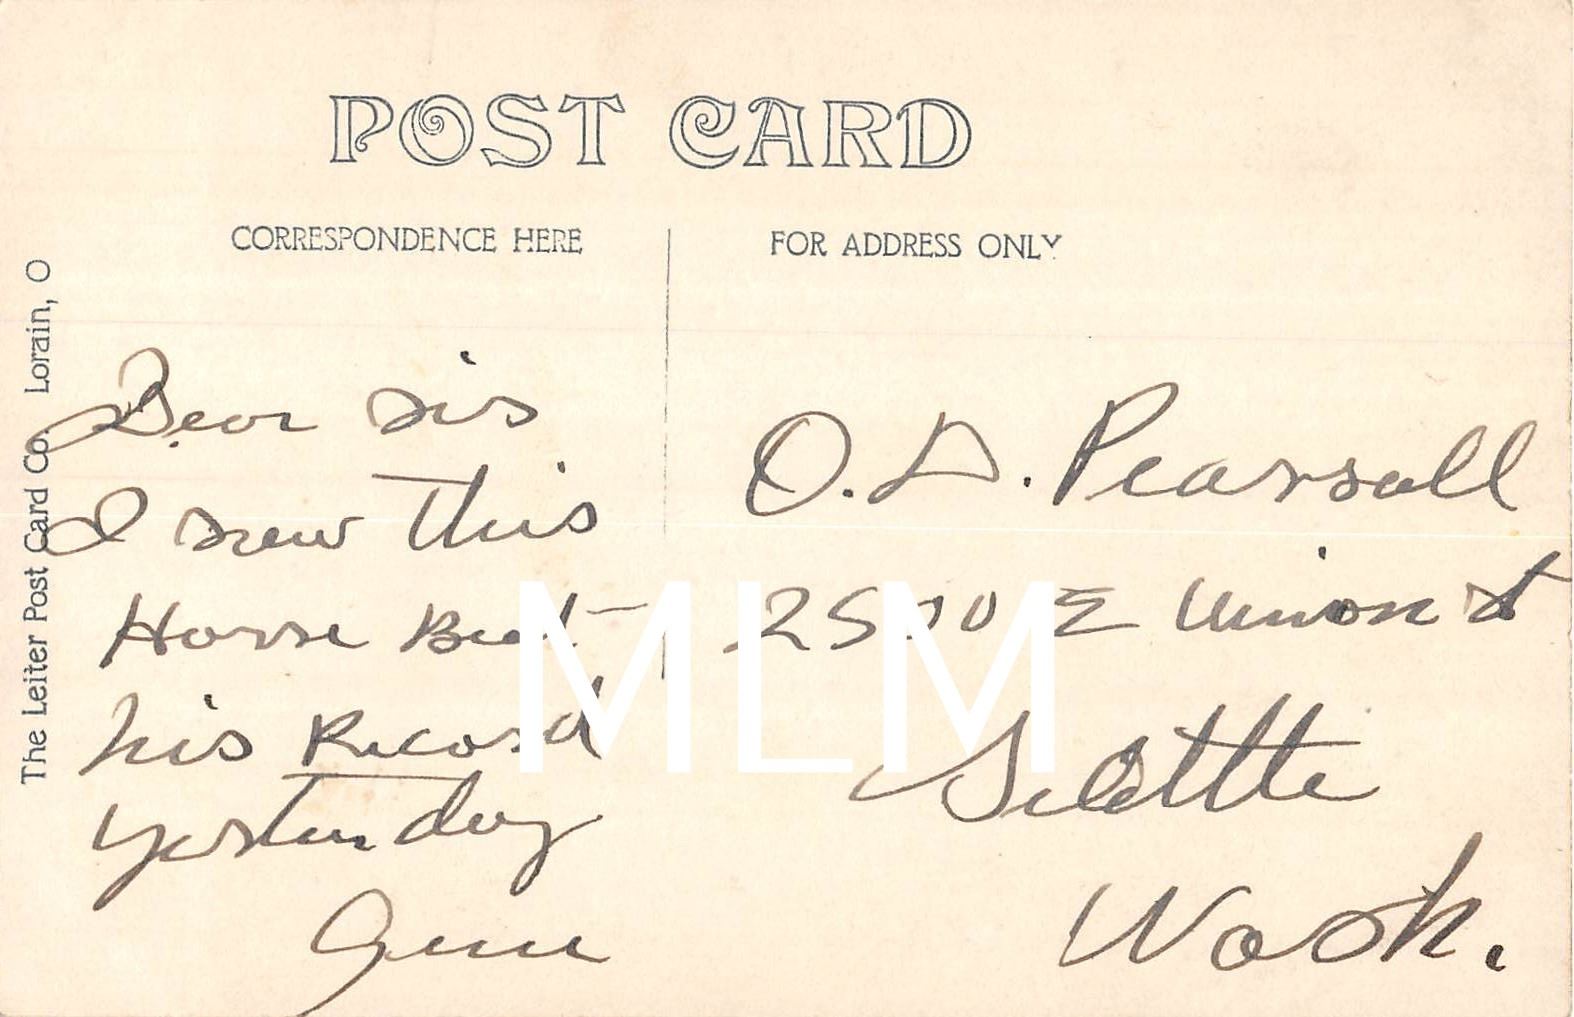 POST CARD
CORRESPONDENCE HERE
FOR ADDRESS ONLY
The Leiter Post Card Co. Lorain, O
Dear sis
I saw this
Horse Beat
his Record
yesterday
Gene
O. D. Pearsall
2500 E Union St
Seattle
Wash.
MLM